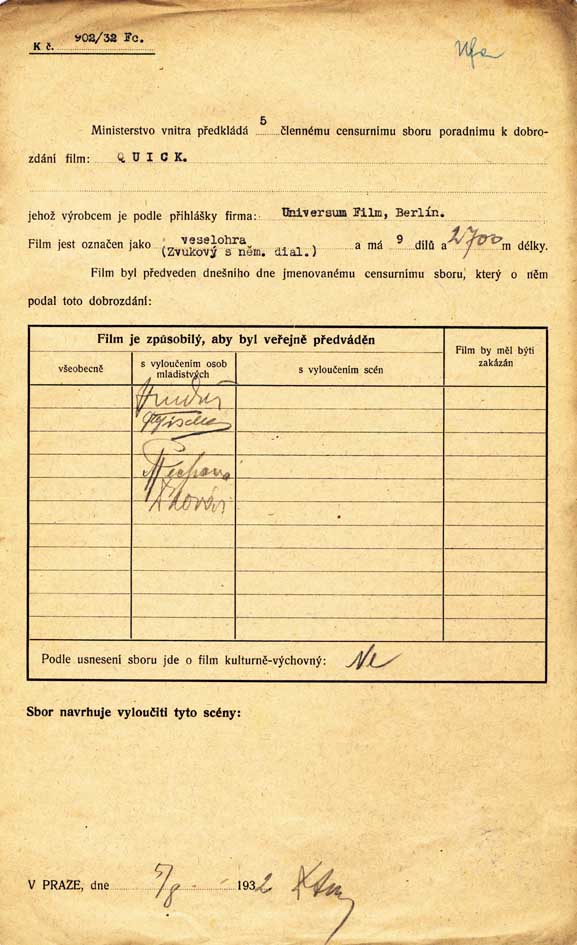 K č. 902/32 Fc.
Ufa
Ministerstvo vnitra předkládá 5 člennému censurnímu sboru poradnímu k dobro-
zdání film: QUICK.
jehož výrobcem je podle přihlášky firma: Universum Film, Berlín.
Film jest označen jako veselohra a má 9 dílů a 2700 m délky.
(Zvukový s něm. dial.)
Film byl předveden dnešního dne jmenovanému censurnímu sboru, který o něm
podal toto dobrozdání:
Film je způsobilý, aby byl veřejně předváděn
Film by měl býti
zakázán
všeobecně
s vyloučením osob
mladistvých
s vyloučením scén
Podle usnesení sboru jde o film kulturně-výchovný: Ne
Sbor navrhuje vyloučiti tyto scény:
V PRAZE, dne 5/8 1932